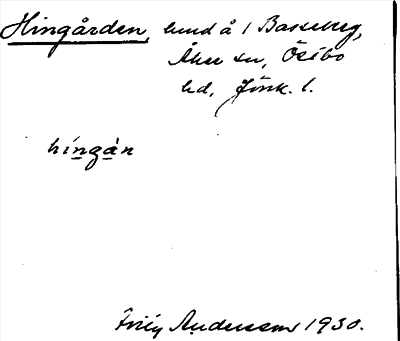 Hingården, lund å 1 Basseberg,
Åker sn, Östbo
hd, Jönk. l.
híngàn
Frily Andersson 1930.